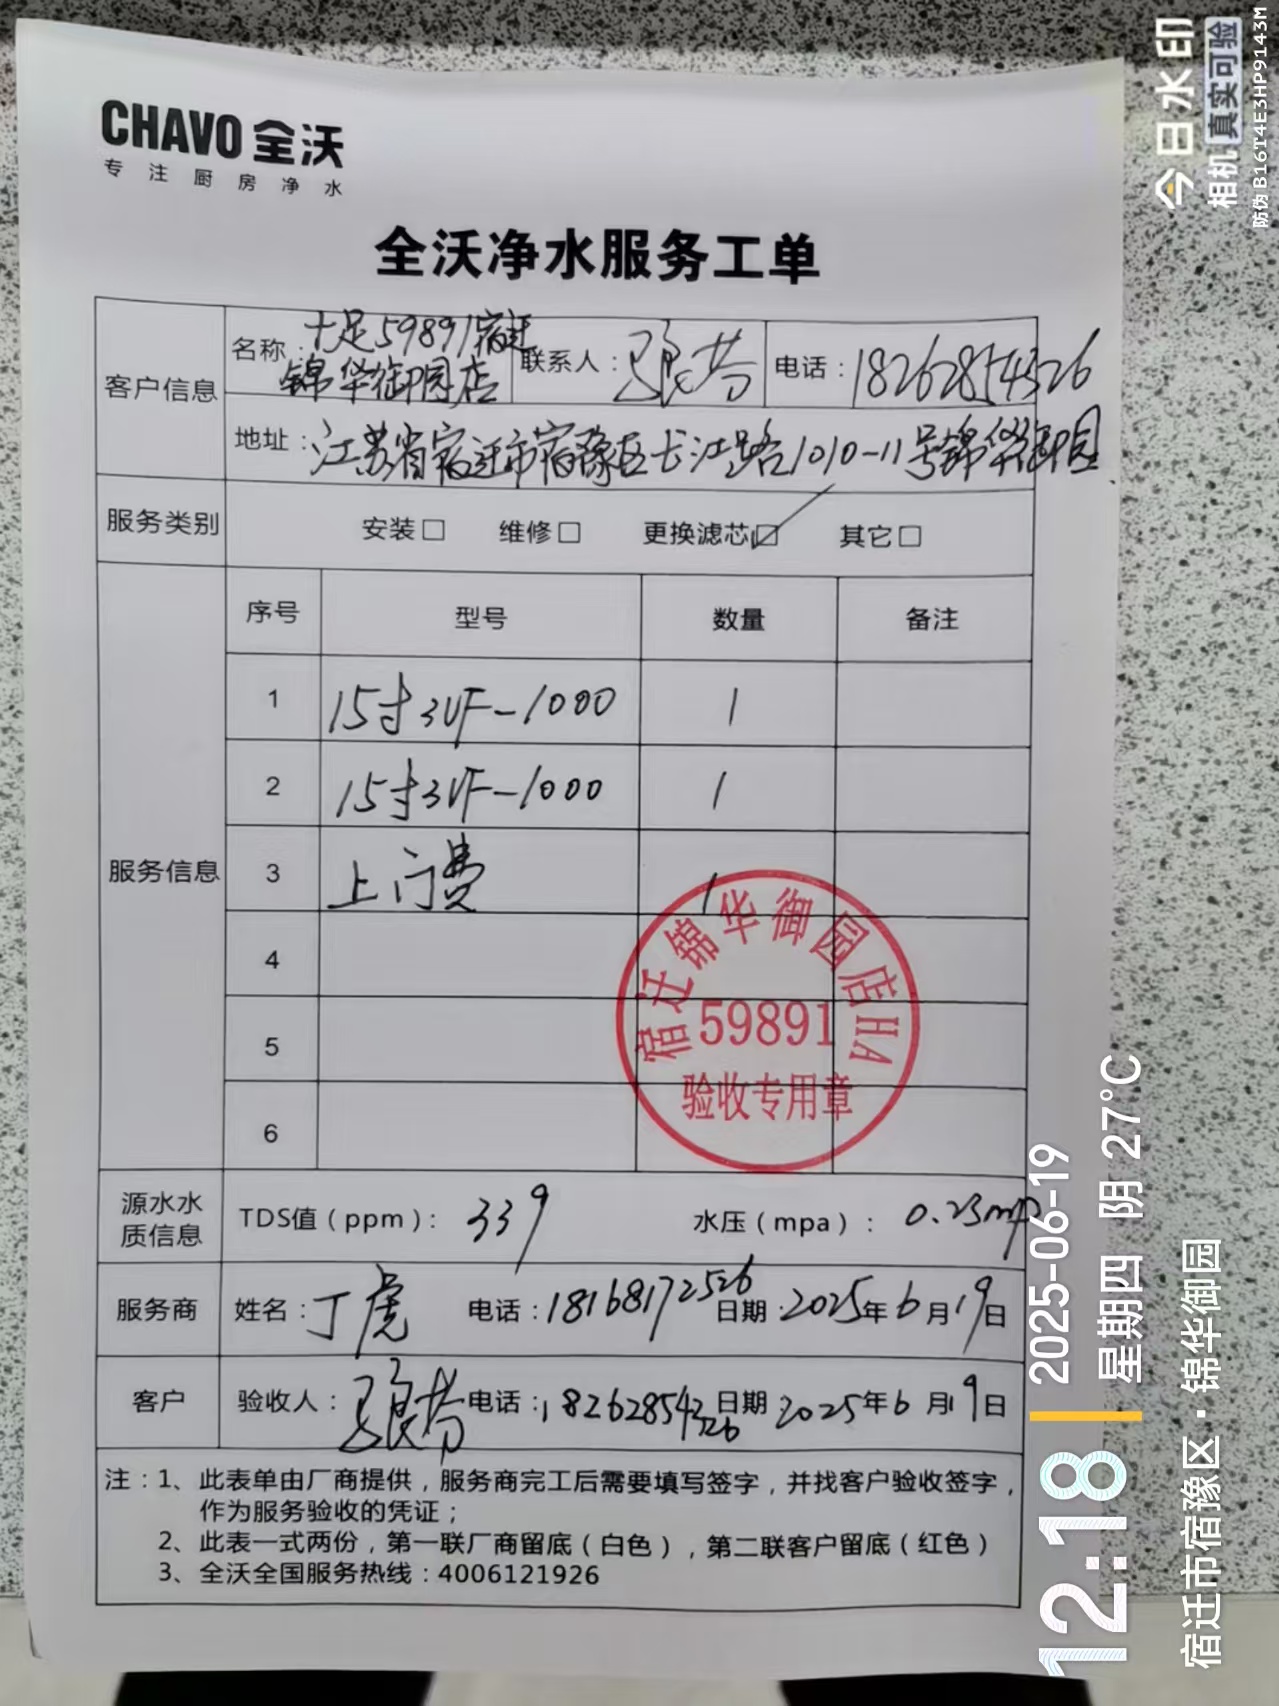 CHAVO 全沃
专注厨房净水
全沃净水服务工单
客户信息
名称：十足59891宿迁
锦华御园店
联系人：
电话：18262854326
地址：江苏省宿迁市宿豫区长江路1010-11号锦华御园
服务类别 安装□ 维修□ 更换滤芯☑ 其它□
服务信息
序号 型号 数量 备注
1 15寸3UF-1000 1
2 15寸3UF-1000 1
3 上门费 1
4
5
6
宿迁锦华御园店HA
59891
验收专用章
源水水质信息 TDS值（ppm）：339 水压（mpa）：0.23mp
服务商 姓名：丁虎 电话：18168172526 日期：2025年6月19日
客户 验收人： 电话：18262854326 日期 2025年6月19日
注：1、此表单由厂商提供，服务商完工后需要填写签字，并找客户验收签字，
作为服务验收的凭证；
2、此表一式两份，第一联厂商留底（白色），第二联客户留底（红色）
3、全沃全国服务热线：4006121926
今日水印
相机 真实可验
防伪 B16T4E3HP9143M
12:18
2025-06-19
星期四 阴 27°C
宿迁市宿豫区·锦华御园